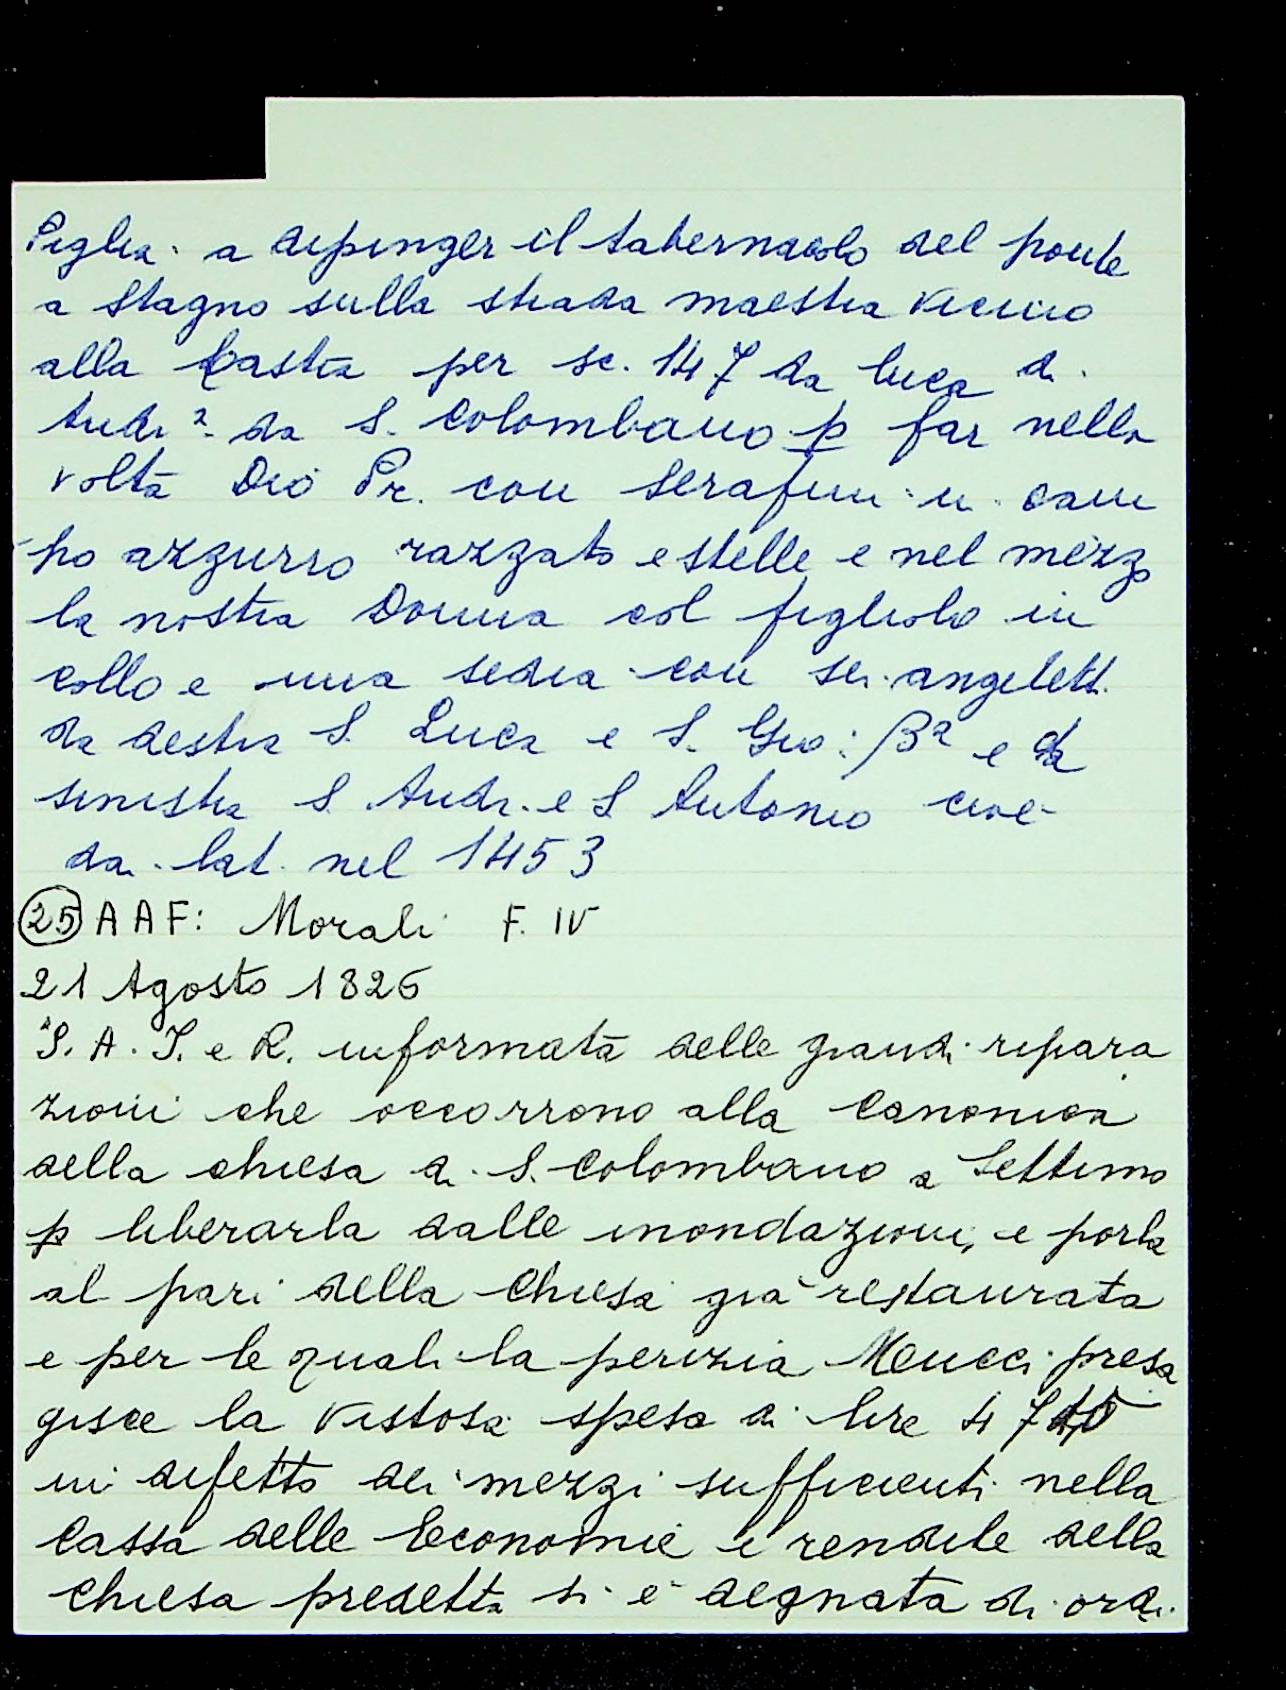 Piglia a dipinger il tabernacolo del ponte
a Stagno sulla strada maestra vicino
alla Lastra per sc. 147 da Luca di
Andr.ª da S. Colombano p far nella
volta Dio Pr. con serafini in cam
po azzurro razzato e stelle e nel mezzo
la nostra Donna col figliolo in
collo e una sedia con sei angelett.
da destra S. Luca e S. Gio: Bª e da
sinistra S. Andr. e S Antonio cioè
da lat. nel 1453
25 AAF: Morali F. IV
21 Agosto 1826
"S. A. I. e R. informata delle grandi ripara
zioni che occorrono alla canonica
della chiesa di S. Colombano a Settimo
p liberarla dalle inondazioni, e porla
al pari della Chiesa già restaurata
e per le quali la perizia Meucci presa
gisce la vistosa spesa di lire
in difetto dei mezzi sufficienti nella
Cassa delle Economie e rendite della
Chiesa predetta si è degnata di ordi